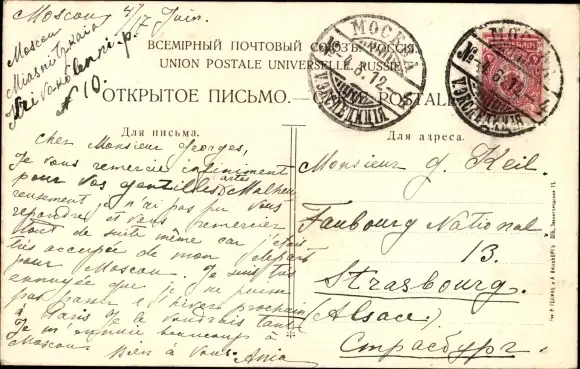 Moscou 4/17 Juin.
Moscou
Miasnitzkaia
Krivokolenni p.
N 10.
ВСЕМІРНЫЙ ПОЧТОВЫЙ СОЮЗЪ. РОССІЯ.
UNION POSTALE UNIVERSELLE. RUSSIE.
ОТКРЫТОЕ ПИСЬМО. — POSTALE
МОСКВА
6.12
ЭКСПЕДИЦІЯ
МОСКВА
6.12
ЭКСПЕДИЦІЯ
Для письма.
Cher Monsieur Georges,
Je vous remercie infiniment
pour vos gentilles cartes. Malheu
reusement je n'ai pas pu vous
repondre et vous remercier
tout de suite même car j'étais
très occupée de mon départ
pour Moscou. Je suis très
ennuyée que je ne puisse
pas passer l'hiver prochain
à Paris. Je le voudrais tant
Je m'ennuie beaucoup à
Moscou. Bien à vous. Ania
Для адреса.
Monsieur g. Keil.
Faubourg National
13.
Strasbourg.
(Alsace)
Страсбургъ.